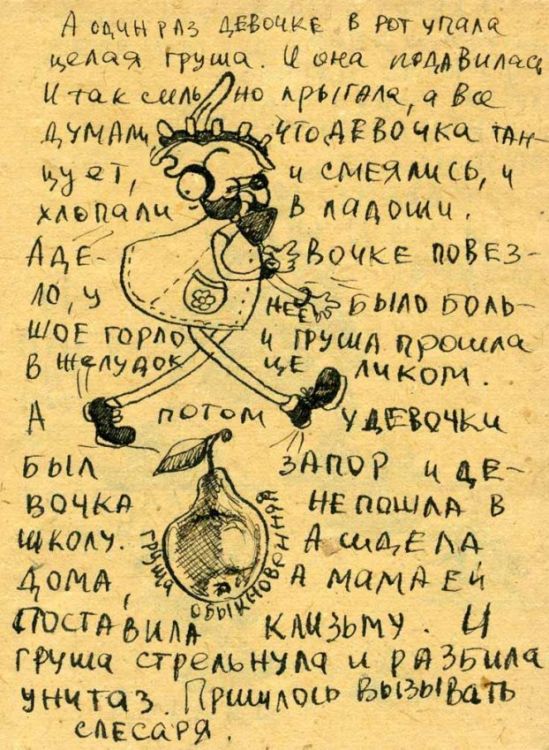 А один раз девочке в рот упала
целая груша. И она подавилась
И так силь но прыгала, а все
думали, что девочка тан-
цует, и смеялись, и
хлопали в ладоши.
А де- вочке повез-
ло, у неё было боль-
шое горло и груша прошла
в желудок це ликом.
А потом у девочки
был запор и де-
вочка не пошла в
школу. А сидела
дома, а мама ей
поставила клизьму. И
груша стрельнула и разбила
унитаз. Пришлось вызывать
слесаря.
груша обыкновенная